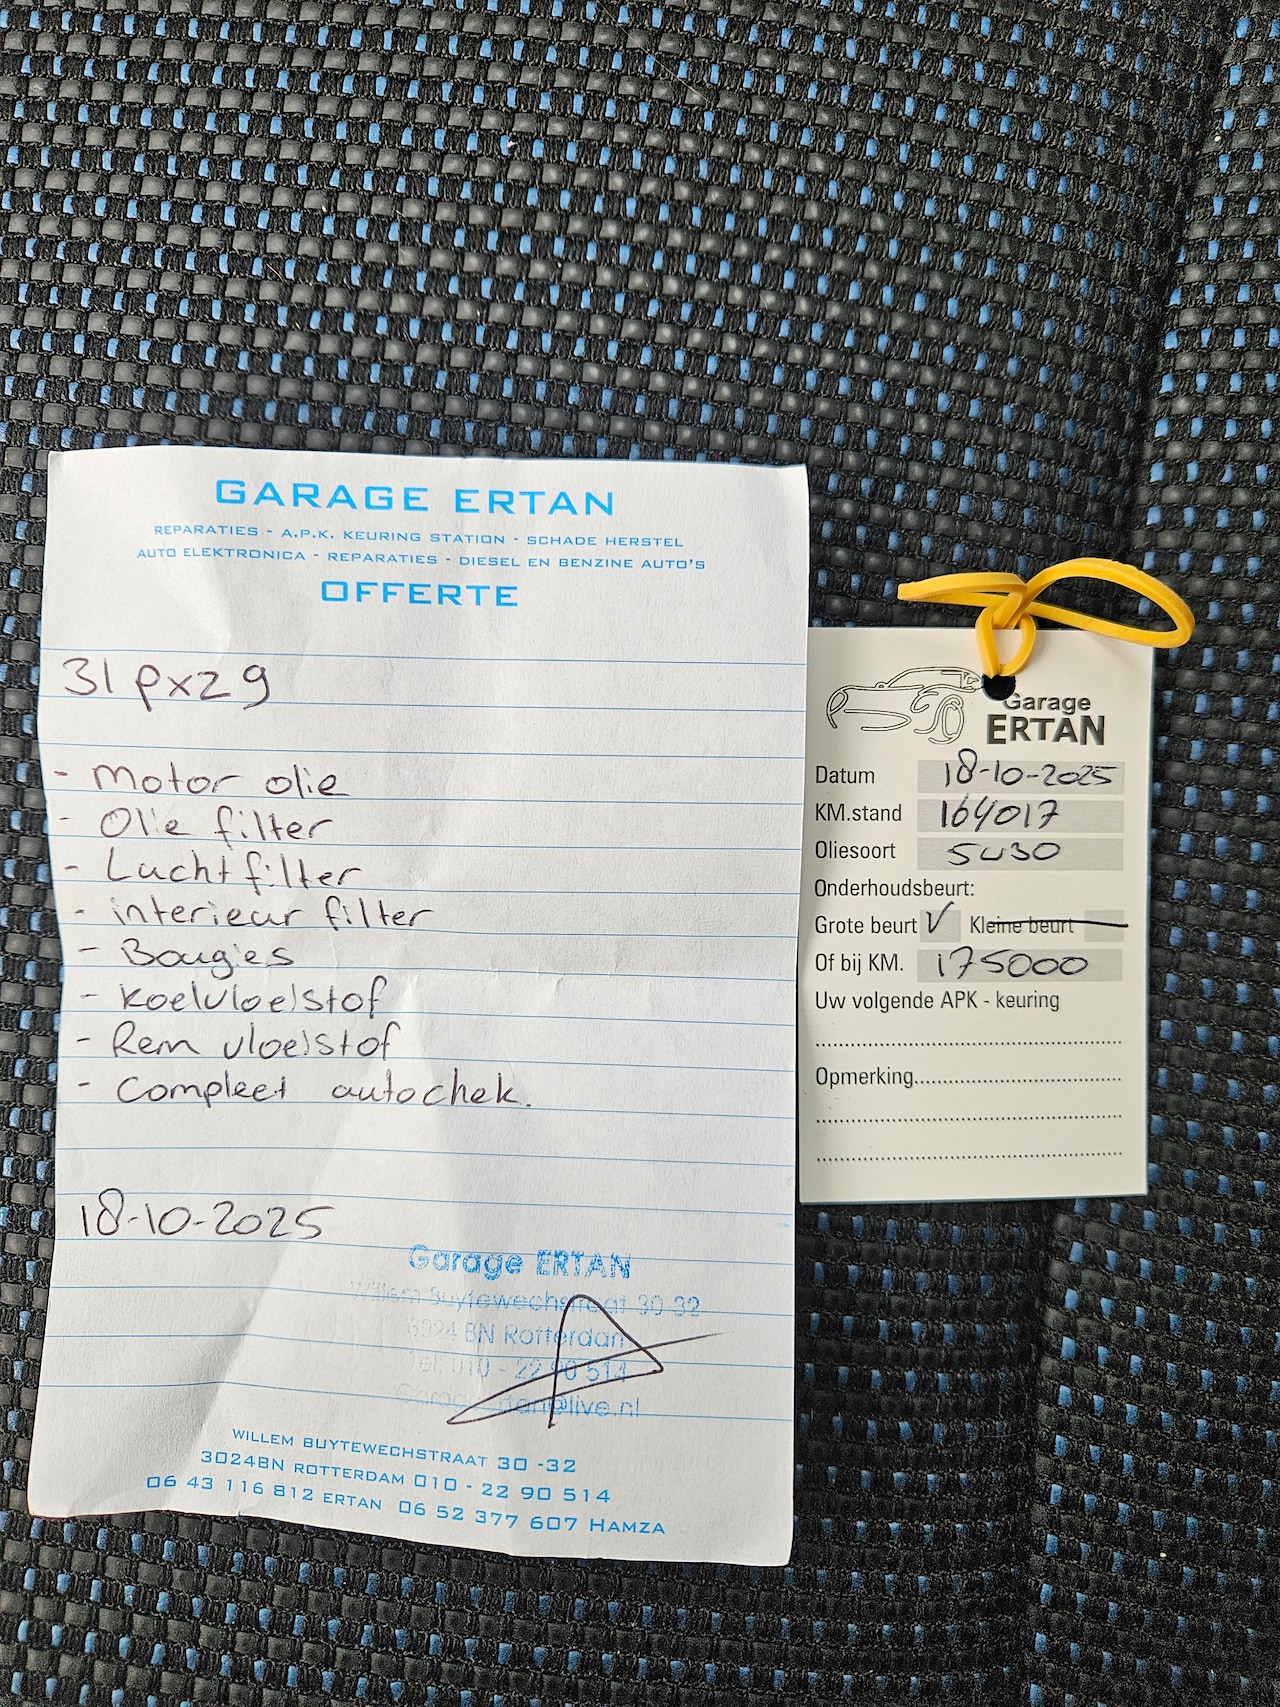 GARAGE ERTAN
REPARATIES - A.P.K. KEURING STATION - SCHADE HERSTEL
AUTO ELEKTRONICA - REPARATIES - DIESEL EN BENZINE AUTO'S
OFFERTE
31pxz9
- Motor olie
- Olie filter
- Luchtfilter
- interieur filter
- Bougies
- Koelvloeistof
- Rem vloeistof
- Compleet autochek.
18-10-2025
Garage ERTAN
Willem Buytewechstraat 30-32
3024 BN Rotterdam
Tel: 010 - 22 90 514
@live.nl
WILLEM BUYTEWECHSTRAAT 30 -32
3024BN ROTTERDAM 010 - 22 90 514
06 43 116 812 ERTAN 06 52 377 607 HAMZA
Garage
ERTAN
Datum 18-10-2025
KM.stand 164017
Oliesoort 5W30
Onderhoudsbeurt:
Grote beurt V Kleine beurt
Of bij KM. 175000
Uw volgende APK - keuring
Opmerking